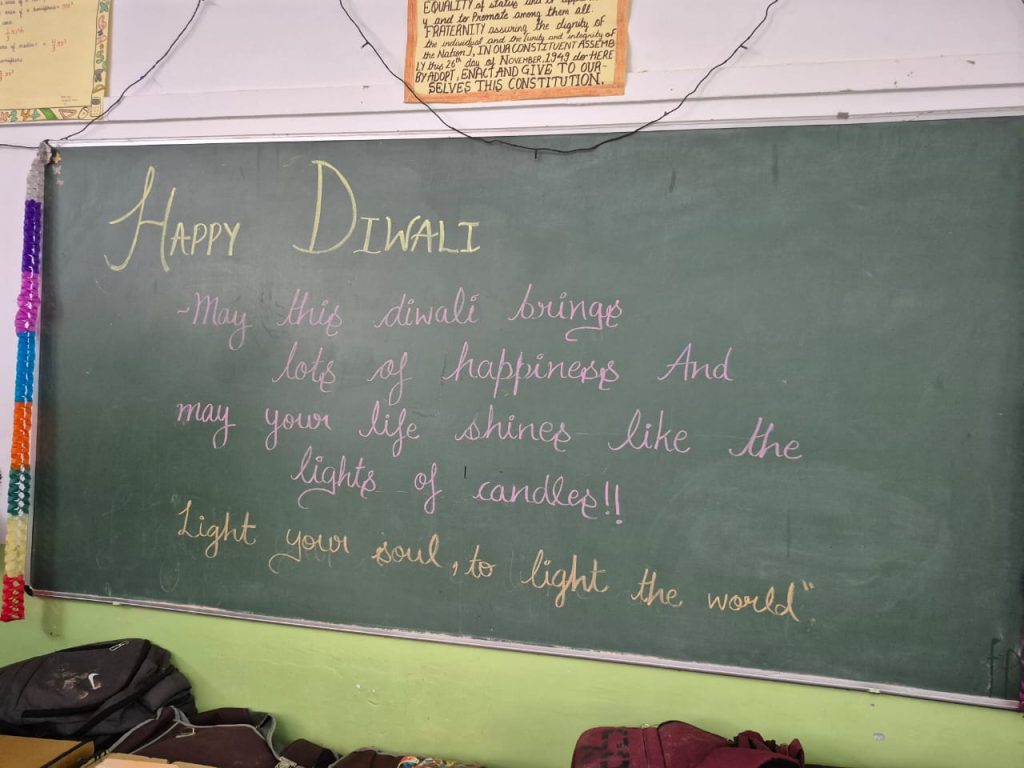 EQUALITY of status
and to Promote among them all
FRATERNITY assuring the dignity of
the individual and the unity and integrity of
the Nation], IN OUR CONSTITUENT ASSEMB
LY this 26th day of NOVEMBER, 1949 do HERE
BY ADOPT, ENACT AND GIVE TO OUR-
SELVES THIS CONSTITUTION.
HAPPY DIWALI
~May this diwali brings
lots of happiness And
may your life shines like the
lights of candles!!
Light your soul, to light the world"